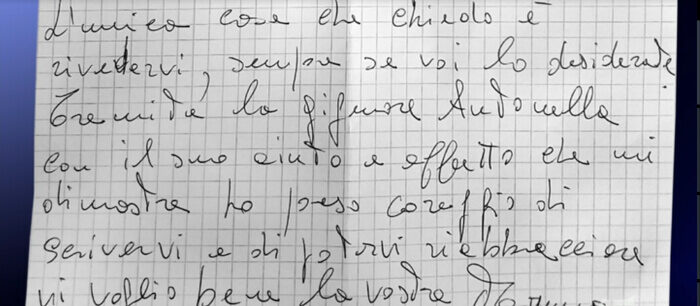 L'unica cosa che chiedo è
rivedervi, sempre se voi lo desiderate
Tramite la signora Antonella
con il suo aiuto e affetto che mi
dimostra ho preso coraggio di
scrivervi e di potervi riabbracciare
vi voglio bene la vostra